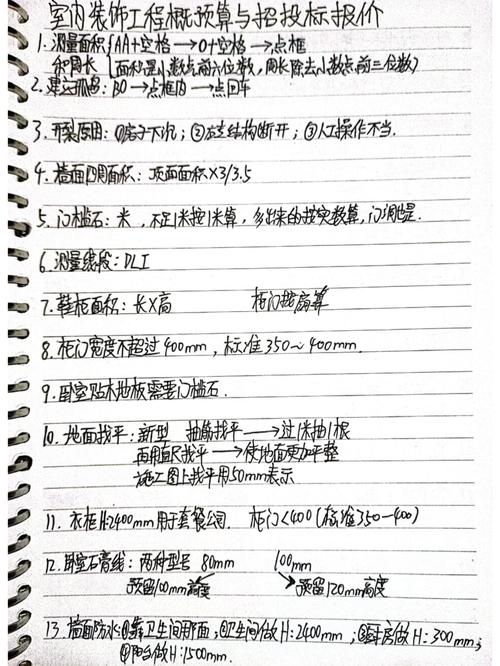 室内装饰工程概预算与招投标报价
1. 测量面积 { AA+空格 → O+空格 → 点框
和周长 (面积是小数点前六位数，周长除去小数点前三位数)
2. 建立孤岛：BO → 点框内 → 点回车
3. 开裂原因：①房子下沉；②左右结构断开；③人工操作不当.
4. 墙面四周面积：顶面面积×3/3.5
5. 门槛石：米，不足1米按1米算，多出来的按实数算，门洞也是.
6. 测量线段：DLI
7. 鞋柜面积：长×高 柜门按扇算
8. 柜门宽度不超过400mm，标准350~400mm.
9. 卧室贴木地板需要门槛石.
10. 地面找平：新型 抽筋找平 → 过1米抽1根
再用直尺找平 → 使地面更加平整
施工图上找平用50mm表示
11. 衣柜H:2400mm用于套餐公司. 柜门<400(标准350-400)
12. 卧室石膏线：两种型号 80mm 100mm
预留100mm高度 预留120mm高度
13. 墙面防水：①靠卫生间那面，②卫生间做H:2400mm；③厨房做H:300mm；
④阳台做H:1500mm.